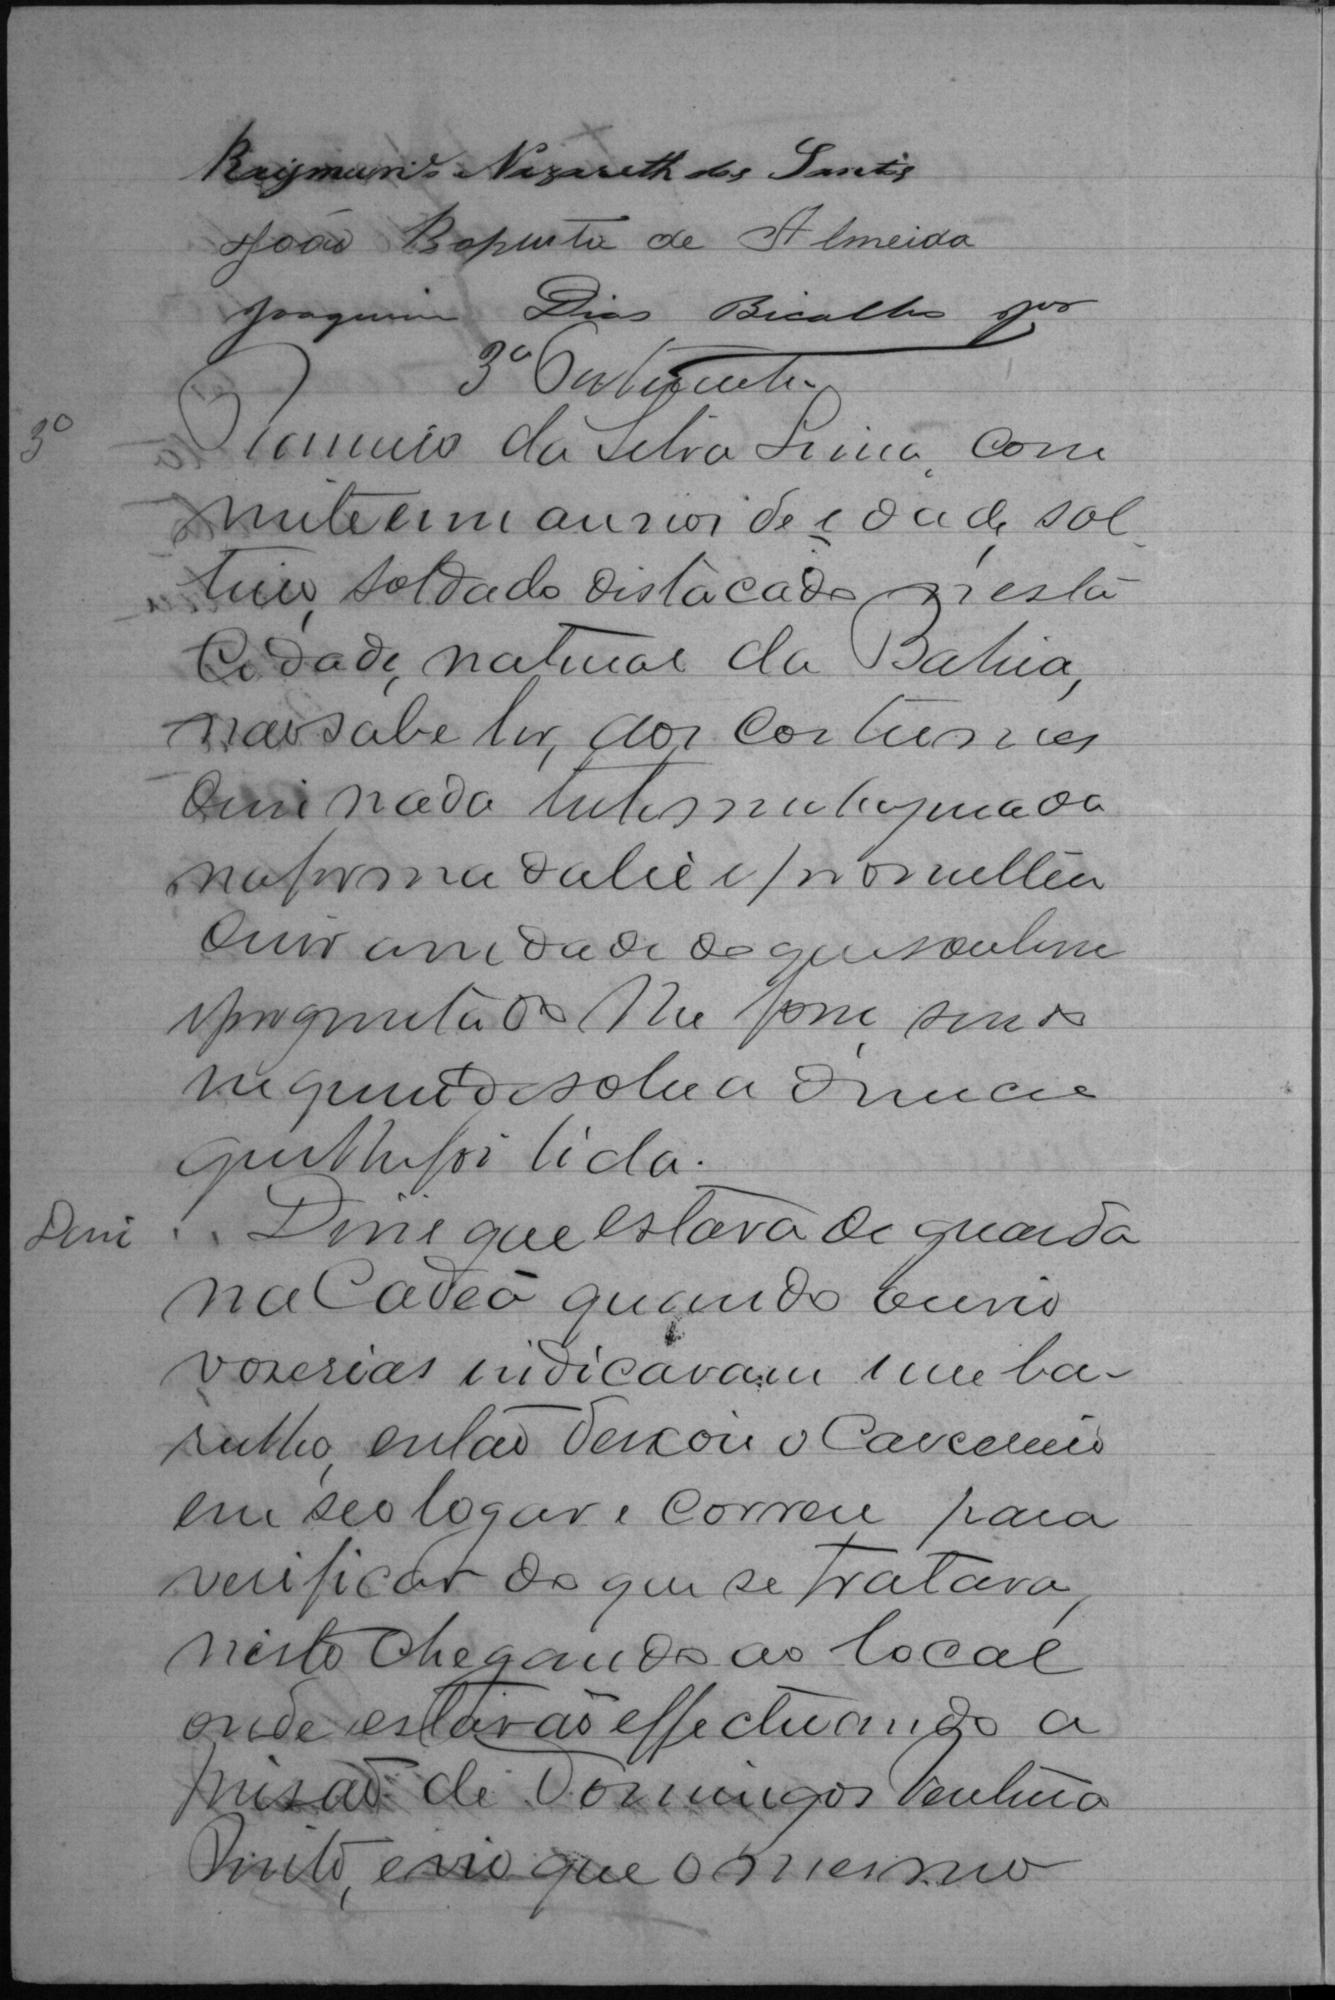 Raymundo Nazareth dos Santos
João Bapusta de Almeida
Joaquim Dias Bicalho
3ª Testimunha
3º
da Silva Lima, com
vinte e um annos de edade, sol
teiro, soldado distacado nesta
Cidade, natural da Bahia,
não sabe ler, dos costumes
disse nada testimunha jurada
na forma da lei e prometteu
dizer a verdade do que soubesse
e perguntado lhe fosse, sendo
inquirido sobre a denuncia
que lhe foi lida.
Disse
Disse que estava de guarda
na Cadeã quando ouvio
vozerias indicavam um ba-
rulho, então deixou o Carcereiro
em seo logar e correu para
verificar do que se tratava,
nisto chegando ao local
onde estavão effectuando a
prisão de Domingos Ventura
Pinto, e vio que o mesmo